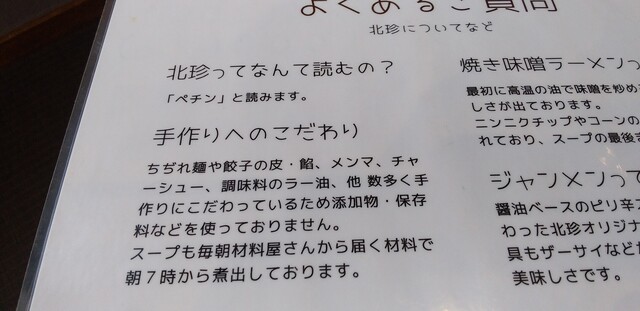 よくあるご質問
北珍についてなど
北珍ってなんて読むの？
「ペチン」と読みます。
手作りへのこだわり
ちぢれ麺や餃子の皮・餡、メンマ、チャ
ーシュー、調味料のラー油、他 数多く手
作りにこだわっているため添加物・保存
料などを使っておりません。
スープも毎朝材料屋さんから届く材料で
朝７時から煮出しております。
焼き味噌ラーメンっ
最初に高温の油で味噌を炒め
しさが出ております。
ニンニクチップやコーンの
れており、スープの最後ま
ジャンメンって
醤油ベースのピリ辛ス
わった北珍オリジナ
具もザーサイなどが
美味しさです。